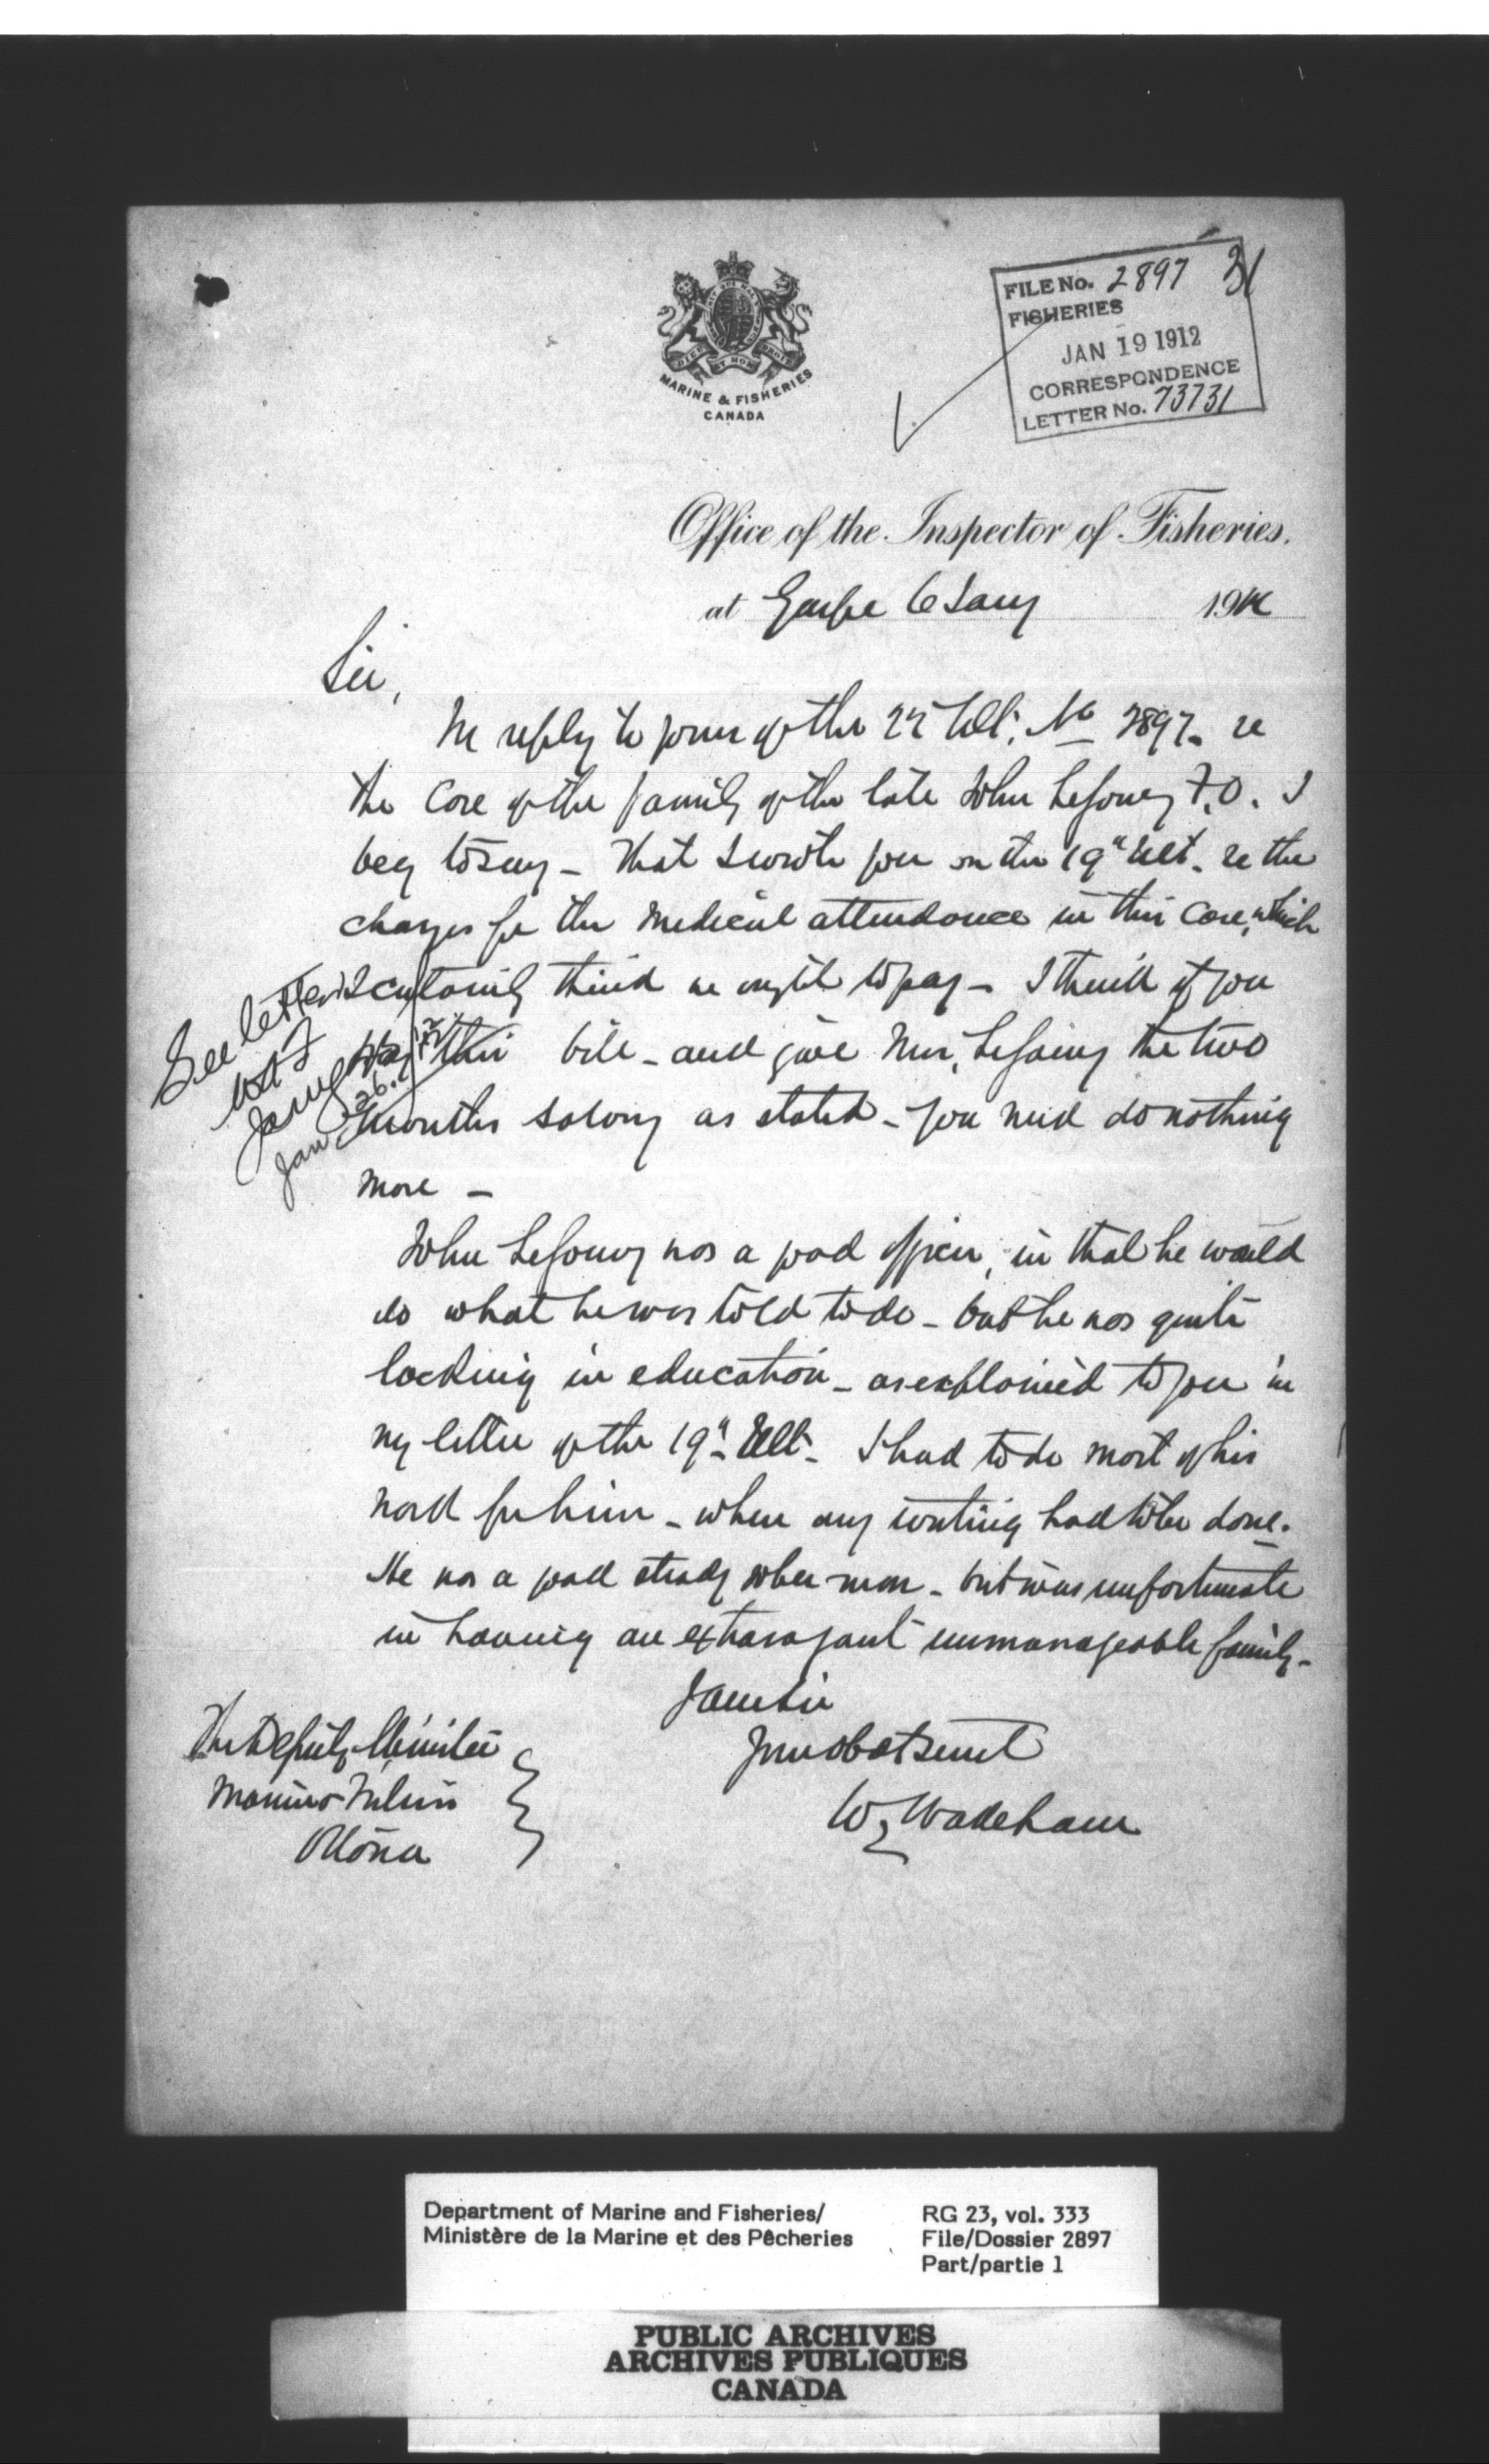 FILE No. 2897 31
FISHERIES
JAN 19 1912
CORRESPONDENCE
LETTER No. 73731
DIEU ET MON DROIT
MARINE & FISHERIES
CANADA
Office of the Inspector of Fisheries.
at Gaspe 6 Jany 1912
Sir,
In reply to yours of the 27 Ult. No 2897. re
the Case of the family of the late John F.O. I
beg to say - that I wrote you on the 19" Ult. re the
charges for the Medical attendance in this Case, which
I certainly think we ought to pay - I think if you
Pay this bill - and give Mrs. the two
months salary as stated - you need do nothing
more -
John was a good officer, in that he would
do what he was told to do - but he was quite
lacking in education - as explained to you in
my letter of the 19" Ult - I had to do most of his
work for him - when any writing had to be done.
He was a good steady sober man - but was unfortunate
in having an extravagant unmanageable family -
I am Sir
Your obt Servt
W. Wakeham
The Deputy Minister
Marine & Fisheries
Ottawa
See letter
Jan 26. 12
Department of Marine and Fisheries/
Ministère de la Marine et des Pêcheries
RG 23, vol. 333
File/Dossier 2897
Part/partie 1
PUBLIC ARCHIVES
ARCHIVES PUBLIQUES
CANADA